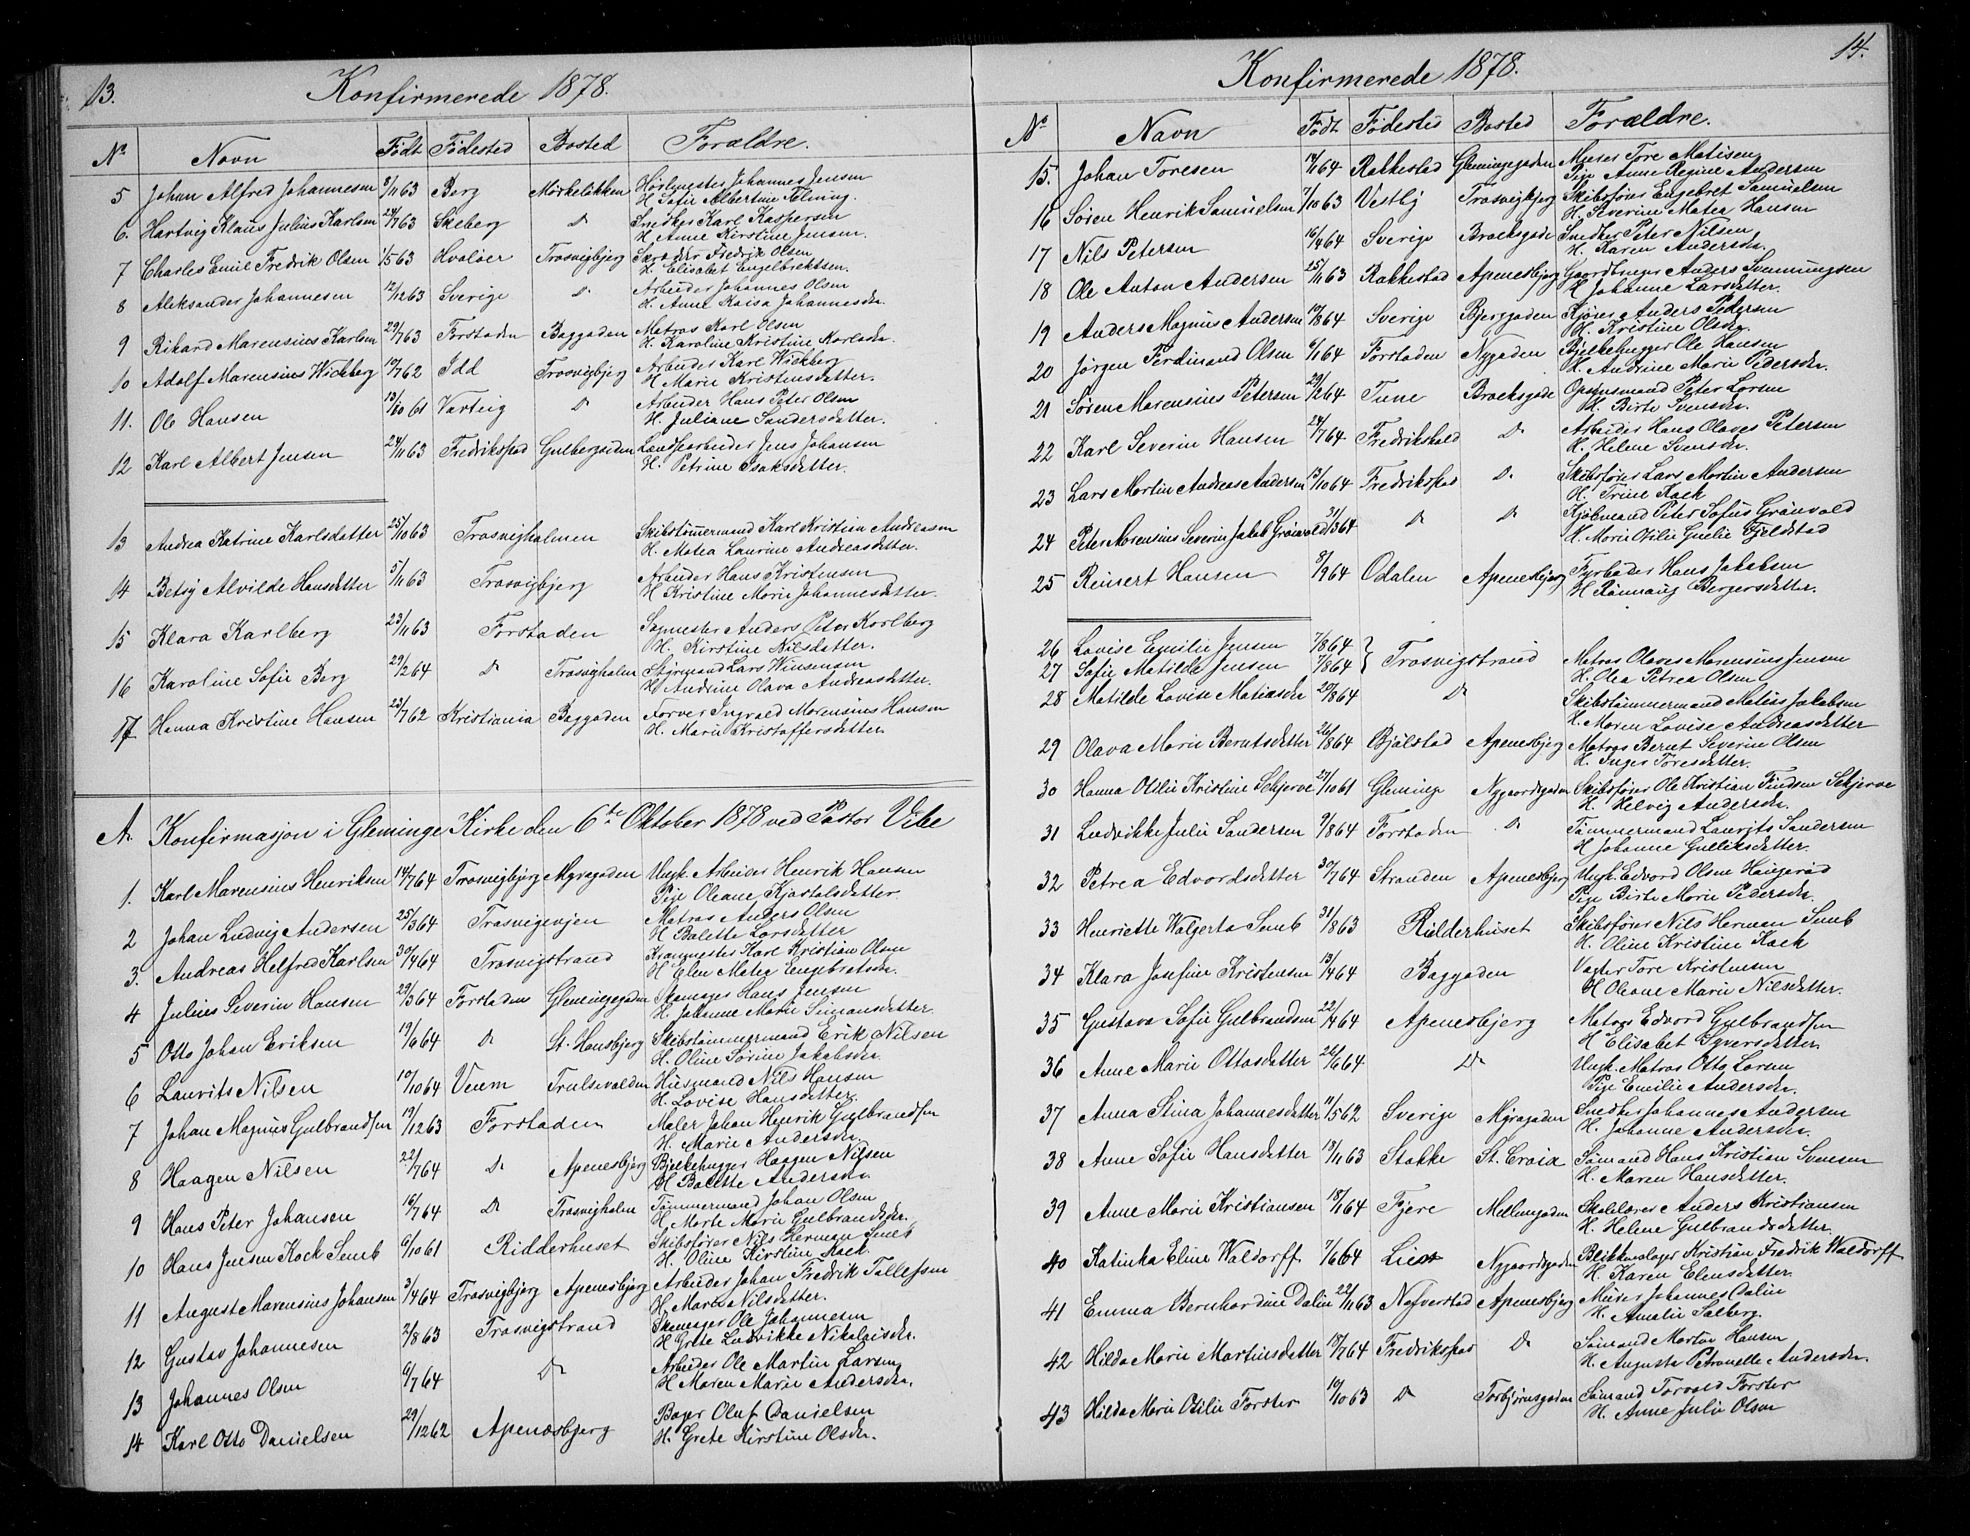 13.
Konfirmerede 1878.
No Navn Født Fødested Bosted Forældre.
5 Johan Alfred Johannesen 8/11 63 Berg Mørkeløkken Johannes Jensen
H. Sofie Albertine
6. Hartvig Klaus Julius Karlsen 24/7 63 Skeberg Do Snedker Karl Kaspersen
H. Anne Kirstine Jensen.
7 Charles Emil Fredrik Olsen 1/5 63 Hvaløer Trosvigbjerg Skræder Fredrik Olsen
H. Elisabet Engelbrektsen.
8 Aleksander Johannesen 12/12 63 Sverige Do Arbeider Johannes Olsen
H. Anna Kaisa Johannesdr.
9 Rikard Marensius Karlsen 29/7 63 Forstaden Baggaden Matros Karl Olsen
H. Karoline Kristine Karlsdr.
10 Adolf Marensius Wickberg 10/7 62 Idd Trosvigbjerg Arbeider Karl Wickberg
H. Marie Kristensdatter.
11. Ole Hansen 13/10 61 Varteig Do Arbeider Hans Peter Olsen
H. Juliane Sandersdatter.
12 Karl Albert Jensen 24/11 63 Fredrikstad Gulbergsiden Landsarbeider Jens Johansen
H. Petrine Isaksdatter.
13 Andrea Katrine Karlsdatter 25/10 63 Trosvigholmen Skibstømermand Karl Kristian Andreasen
H. Matea Laurine Andreasdatter.
14 Betsy Alvilde Hansdatter 5/11 63 Trosvigbjerg Arbeider Hans Kristensen
H. Kristine Marie Johannesdatter.
15 Klara Karlberg 23/11 63 Forstaden Sagmester Anders Peter Karlberg
H. Kirstine Nilsdatter.
16 Karoline Sofie Berg 29/2 64 Do Trosvigholm Styrmand Lars
H. Andrine Olava Andreasdatter.
17 Hanna Kristine Hansen 23/7 62 Kristiania Baggaden Farver Ingvald Marensius Hansen
H. Marie Kristoffersdatter.
A. Konfirmasjon i Gleminge Kirke den 6te Oktober 1878 ved Pastor Vibe
1. Karl Marensius Henriksen 14/7 64 Trosvigbjerg Myregaden Ungk. Arbeider Henrik Hansen
Pige Oleane Kjøstolsdatter
2 Johan Ludvig Andersen 25/3 64 Trosvigevjen Matros Anders Olsen
H. Bolette Larsdatter
3. Andreas Helfred Karlsen 30/4 64 Trosvigstrand Karl Kristian Olsen
H. Elen Matea Engebretsdr.
4 Julius Severin Hansen 29/3 64 Forstaden Glemingegaden Skomager Hans Jensen
H. Johanne Marie Simonsdatter.
5 Otto Johan Eriksen 19/6 64 Do St. Hansbjerg Skibstømmermand Erik Nilsen
H. Oline Sørine Jakobsdr.
6 Laurits Nilsen 10/10 64 Veum Trulsevolden Husmand Nils Hansen
H. Lovise Hansdatter.
7 Johan Magnus Gulbrandsen 19/12 63 Forstaden Maler Johan Henrik Gulbrandsen
H. Marie Andersdr.
8 Haagen Nilsen 22/7 64 Do Apenesbjerg Bjelkehugger Haagen Nilsen
H. Bolette Andersdr.
9 Hans Peter Johansen 16/7 64 Do Trosvigholm Tømmermand Johan Olsen
H. Marte Marie Gulbrandsdr.
10 Hans Jensen Kock Semb 6/10 61 Ridderhuset Skibsfører Nils Herman Semb
H. Oline Kirstine Kock.
11 August Marensius Johansen 3/4 64 Trosvigbjerg Apenesbjerg Arbeider Johan Fredrik Tollefsen
H. Maren Nilsdatter.
12 Gustav Johannesen 2/8 63 Trosvigstrand Skomager Ole Johannesen
H. Grete Ludvikke Nikolaisdr.
13 Johannes Olsen 6/7 64 Do Arbeider Ole Martin Larsen
H. Maren Marie Andersdr.
14 Karl Otto Danielsen 29/12 62 Apenæsbjerg Bager Oluf Danielsen
H. Grete Kirstine Olsdr.
14.
Konfirmerede 1878.
No Navn Født Fødested Bosted Forældre.
15. Johan Toresen 14/1 64 Rakkestad Glemingegaden Murer Tore Matisen
Pige Anne Regine Andersen
16 Søren Henrik Samuelsen 7/10 63 Vestby Trosvigbjerg Skibsfører Engebret Samuelsen
H. Severine Matea Hansen
17 Nils Petersen 16/4 64 Sverige Brocksgade Snedker Peter Nilsen
H. Karen Andersdr.
18 Ole Anton Andersen 25/11 63 Rakkestad Apenesbjerg Gaardbruger Anders Svenningsen
H. Johanne Larsdatter.
19 Anders Magnus Andersen 17/8 64 Sverige Bjerggaden Kjører Anders Pedersen
H. Kristine Olsdr.
20 Jørgen Ferdinand Olsen 6/1 64 Forstaden Nygaden Bjelkehugger Ole Hansen
H. Andrine Marie Pedersdr.
21 Søren Marensius Petersen 29/12 64 Tune Brocksgade Opsynsmand Peter Larsen
H. Birte Svensdr.
22 Karl Severin Hansen 24/7 64 Fredrikshald Do Arbeider Hans Olaves Petersen
H. Helene Svensdr.
23 Lars Martin Andreas Andersen 13/10 64 Fredrikstad Do Skibsfører Lars Martin Andersen
H. Trine Kock
24 Peter Marensius Severin Jakob Grønvold 31/3 64 Do Do Kjøbmand Peter Sofus Grønvold
H. Marie Otilie Gjeldstad
25 Reinert Hansen 8/9 64 Odalen Apenesbjerg Fyrbøder Hans Jakobsen
H. Rønnaug Bergersdatter.
26 Lovise Emilie Jensen 7/8 64
27 Sofie Matilde Jensen 7/8 64 } Trosvigstrand Matros Olaves Marensius Jensen
H. Olea Petrea Olsen
28 Matilde Lovise Matiasdr 20/8 64 Do Skibstømmermand Matias Jakobsen
H. Maren Lovise Andreasdatter
29 Olava Marie Berntsdatter 26/8 64 Bjølstad Apenesbjerg Matros Bernt Severin Olsen
H. Inger Toresdatter.
30 Hanna Otilie Kristine Schjerve 27/10 61 Gleminge Nygaardsgaden Skibsfører Ole Kristian Findsen Schjerve
H. Helvig Andersdr.
31 Ludvikke Julie Sandersen 9/8 64 Forstaden Do Tømmermand Laurits Sandersen
H. Johanne Gulliksdatter.
32 Petrea Edvardsdatter 30/7 64 Stranden Apenesbjerg Ungk. Edvard Olsen Haugerød
Pige Birte Marie Pedersdr.
33 Henriette Walgerta Semb 31/8 63 Ridderhuset Skibsfører Nils Herman Semb
H. Oline Kristine Kock
34 Klara Josefine Kristensen 13/4 64 Baggaden Vægter Tore Kristensen
H. Oleane Marie Nilsdatter.
35 Gustava Sofie Gulbrandsen 22/4 64 Apenesbjerg Matros Edvard Gulbrandsen
H. Elisabet Syversdatter.
36 Anne Marie Ottosdatter 26/6 64 Do Ungk. Matros Otto Larsen
Pige Emilie Andersdr.
37 Anna Stina Johannesdatter 11/5 62 Sverige Myragaden Snedker Johannes Andersen
H. Johanne Andersdr.
38 Anne Sofie Hansdatter 18/11 63 Stokke St. Croix Sømand Hans Kristian Svensen
H. Maren Hansdatter.
39 Anne Marie Kristiansen 18/1 64 Fjere Mellemgaden Skolelærer Anders Kristiansen
H. Helene Gulbrandsdatter.
40 Katinka Eline Waldorff 7/6 64 Lier Nygaardsgaden Blikkenslager Kristian Fredrik Waldorff
H. Karen Elensdatter.
41 Emma Bernhardine Dalin 22/11 63 Næfverstad Apenesbjerg Murer Johannes Dalin
H. Amalie Solberg.
42 Hilda Marie Martinsdatter 18/7 64 Fredrikstad Do Sømand Martin Hansen
H. Augusta Petronelle Andersdr.
43 Hilda Marie Otilie Forster 10/10 63 Do Torbjørnsgaden Sømand Torvald Forster
H. Anne Julie Olsen